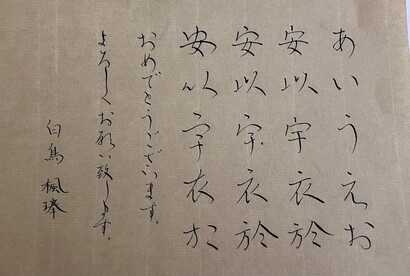 あいうえお
安以宇衣於
安以宇衣於
安以宇衣於
おめでとうございます。
よろしくお願い致します。
白鳥 楓